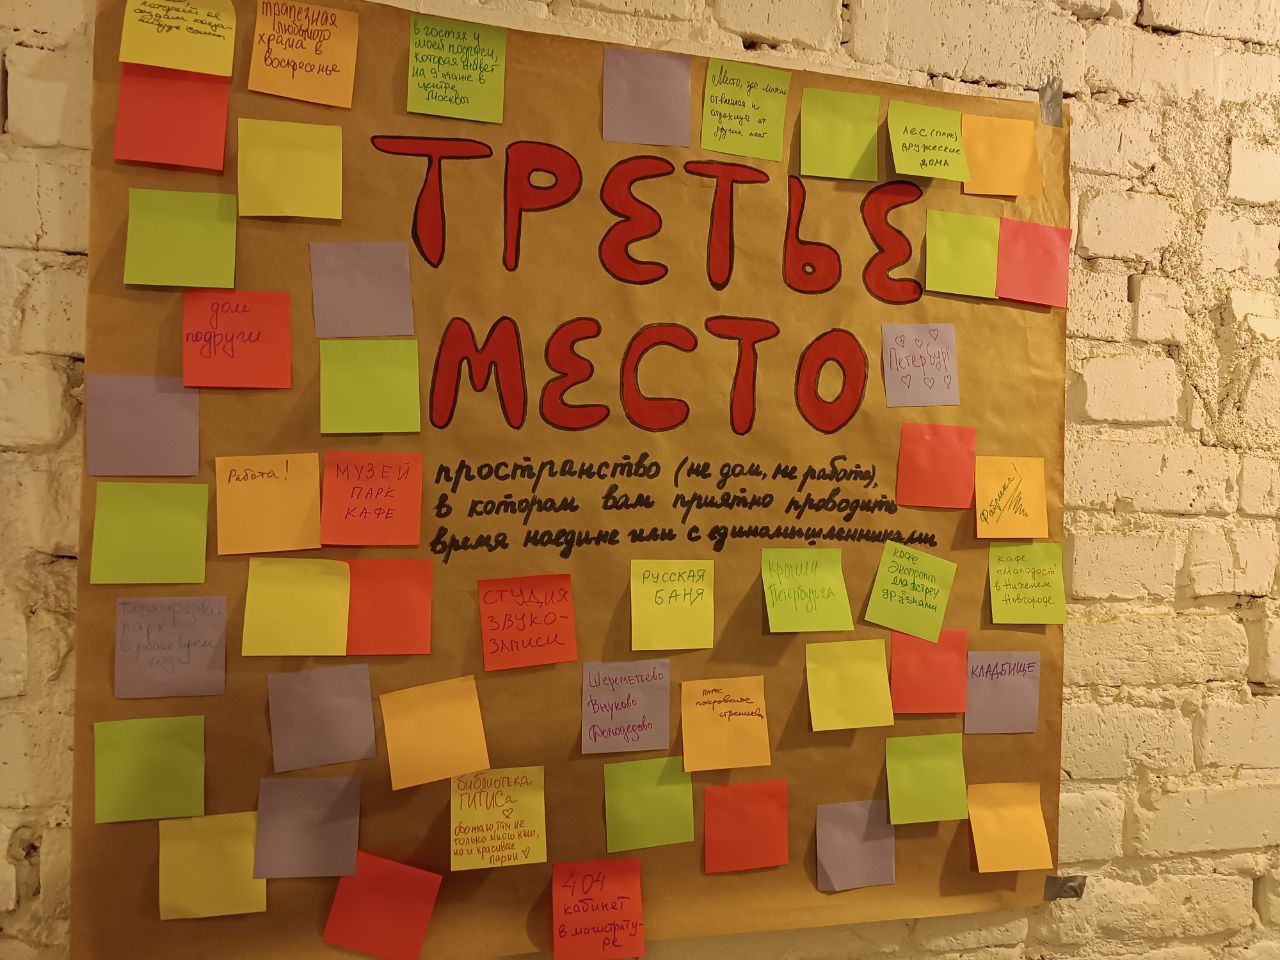 трапезная
любимого
храма в
воскресенье
в гостях у
моей подруги,
которая живёт
на 9 этаже в
центре
Москвы
Место, где можно
отвлечься и
отдохнуть от
других мест
ЛЕС (ПАРК)
ДРУЖЕСКИЕ
ДОМА
ТРЕТЬЕ
МЕСТО
пространство (не дом, не работа),
в котором вам приятно проводить
время наедине или с единомышленниками
дом
подруги
Петербург
Работа!
МУЗЕЙ
ПАРК
КАФЕ
Фабрика!
парк
в любое время
года
СТУДИЯ
ЗВУКО-
ЗАПИСИ
РУССКАЯ
БАНЯ
крыши
Петербурга
кафе
Экспромт
для встреч
друзьями
кафе
"Молодость"
в Нижнем
Новгороде
Шереметьево
Внуково
Домодедово
парк
покровское
стрешнево
КЛАДБИЩЕ
библиотека
ГИТИСа
обожаю, там не
только много книг,
но и красивые
парни
404
кабинет
в магистрату-
ре